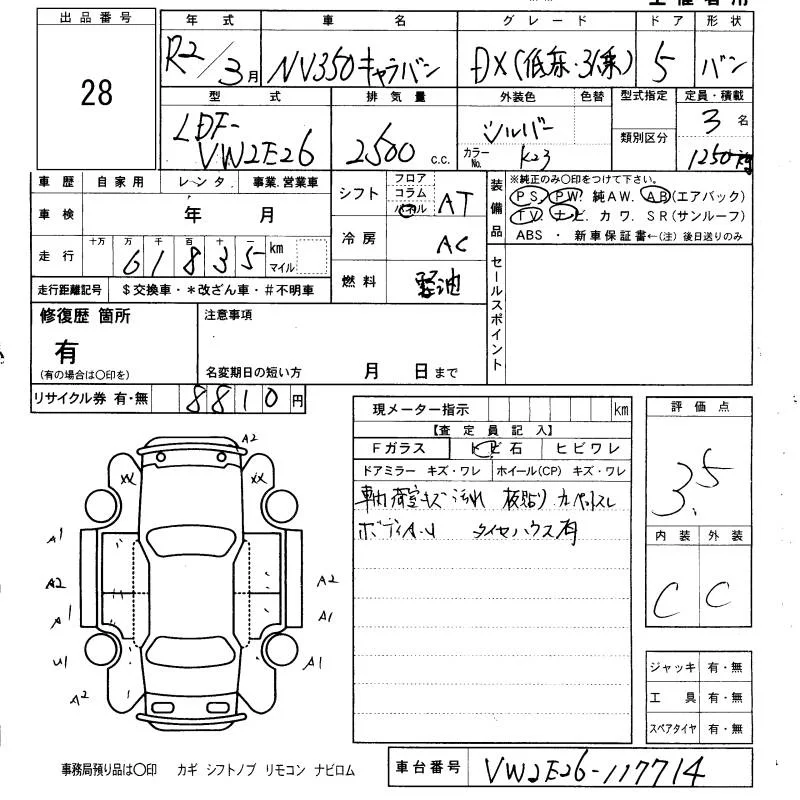 出品番号
28
年式 車名 グレード ドア 形状
R2/3月 NV350キャラバン DX(低床・3(乗) 5 バン
型式 排気量 外装色 色替 型式指定 定員・積載
LDF-VW2E26 2500 C.C. シルバー 類別区分 3名
カラーNo. K23 1250kg
車歴 自家用 レンタ 事業.営業車
車検 年 月
走行 十万 万 千 百 十 一 km マイル
61835
走行距離記号 $交換車・*改ざん車・#不明車
シフト フロア コラム パネル AT
冷房 AC
燃料 軽油
装備品 ※純正のみ○印をつけて下さい。
PS. PW. 純AW. AB(エアバック)
TV. ナビ. カワ. SR(サンルーフ)
ABS ・ 新車保証書←(注) 後日送りのみ
セールスポイント
修復歴 箇所
有
(有の場合は○印を)
注意事項
名変期日の短い方 月 日まで
リサイクル券 有・無 8810円
現メーター指示 km
【査定員記入】
Fガラス トビ石 ヒビワレ
ドアミラー キズ・ワレ ホイール(CP) キズ・ワレ
荷室キズ汚れ 板貼り カーペットスレ
ボディA.U タイヤハウス有
評価点
3.5
内装 外装
C C
ジャッキ 有・無
工具 有・無
スペアタイヤ 有・無
A2
XX XX
A1
A2 A2
A1 A1
U1 A1
A2
事務局預り品は○印 カギ シフトノブ リモコン ナビロム
車台番号 VW2E26-117714